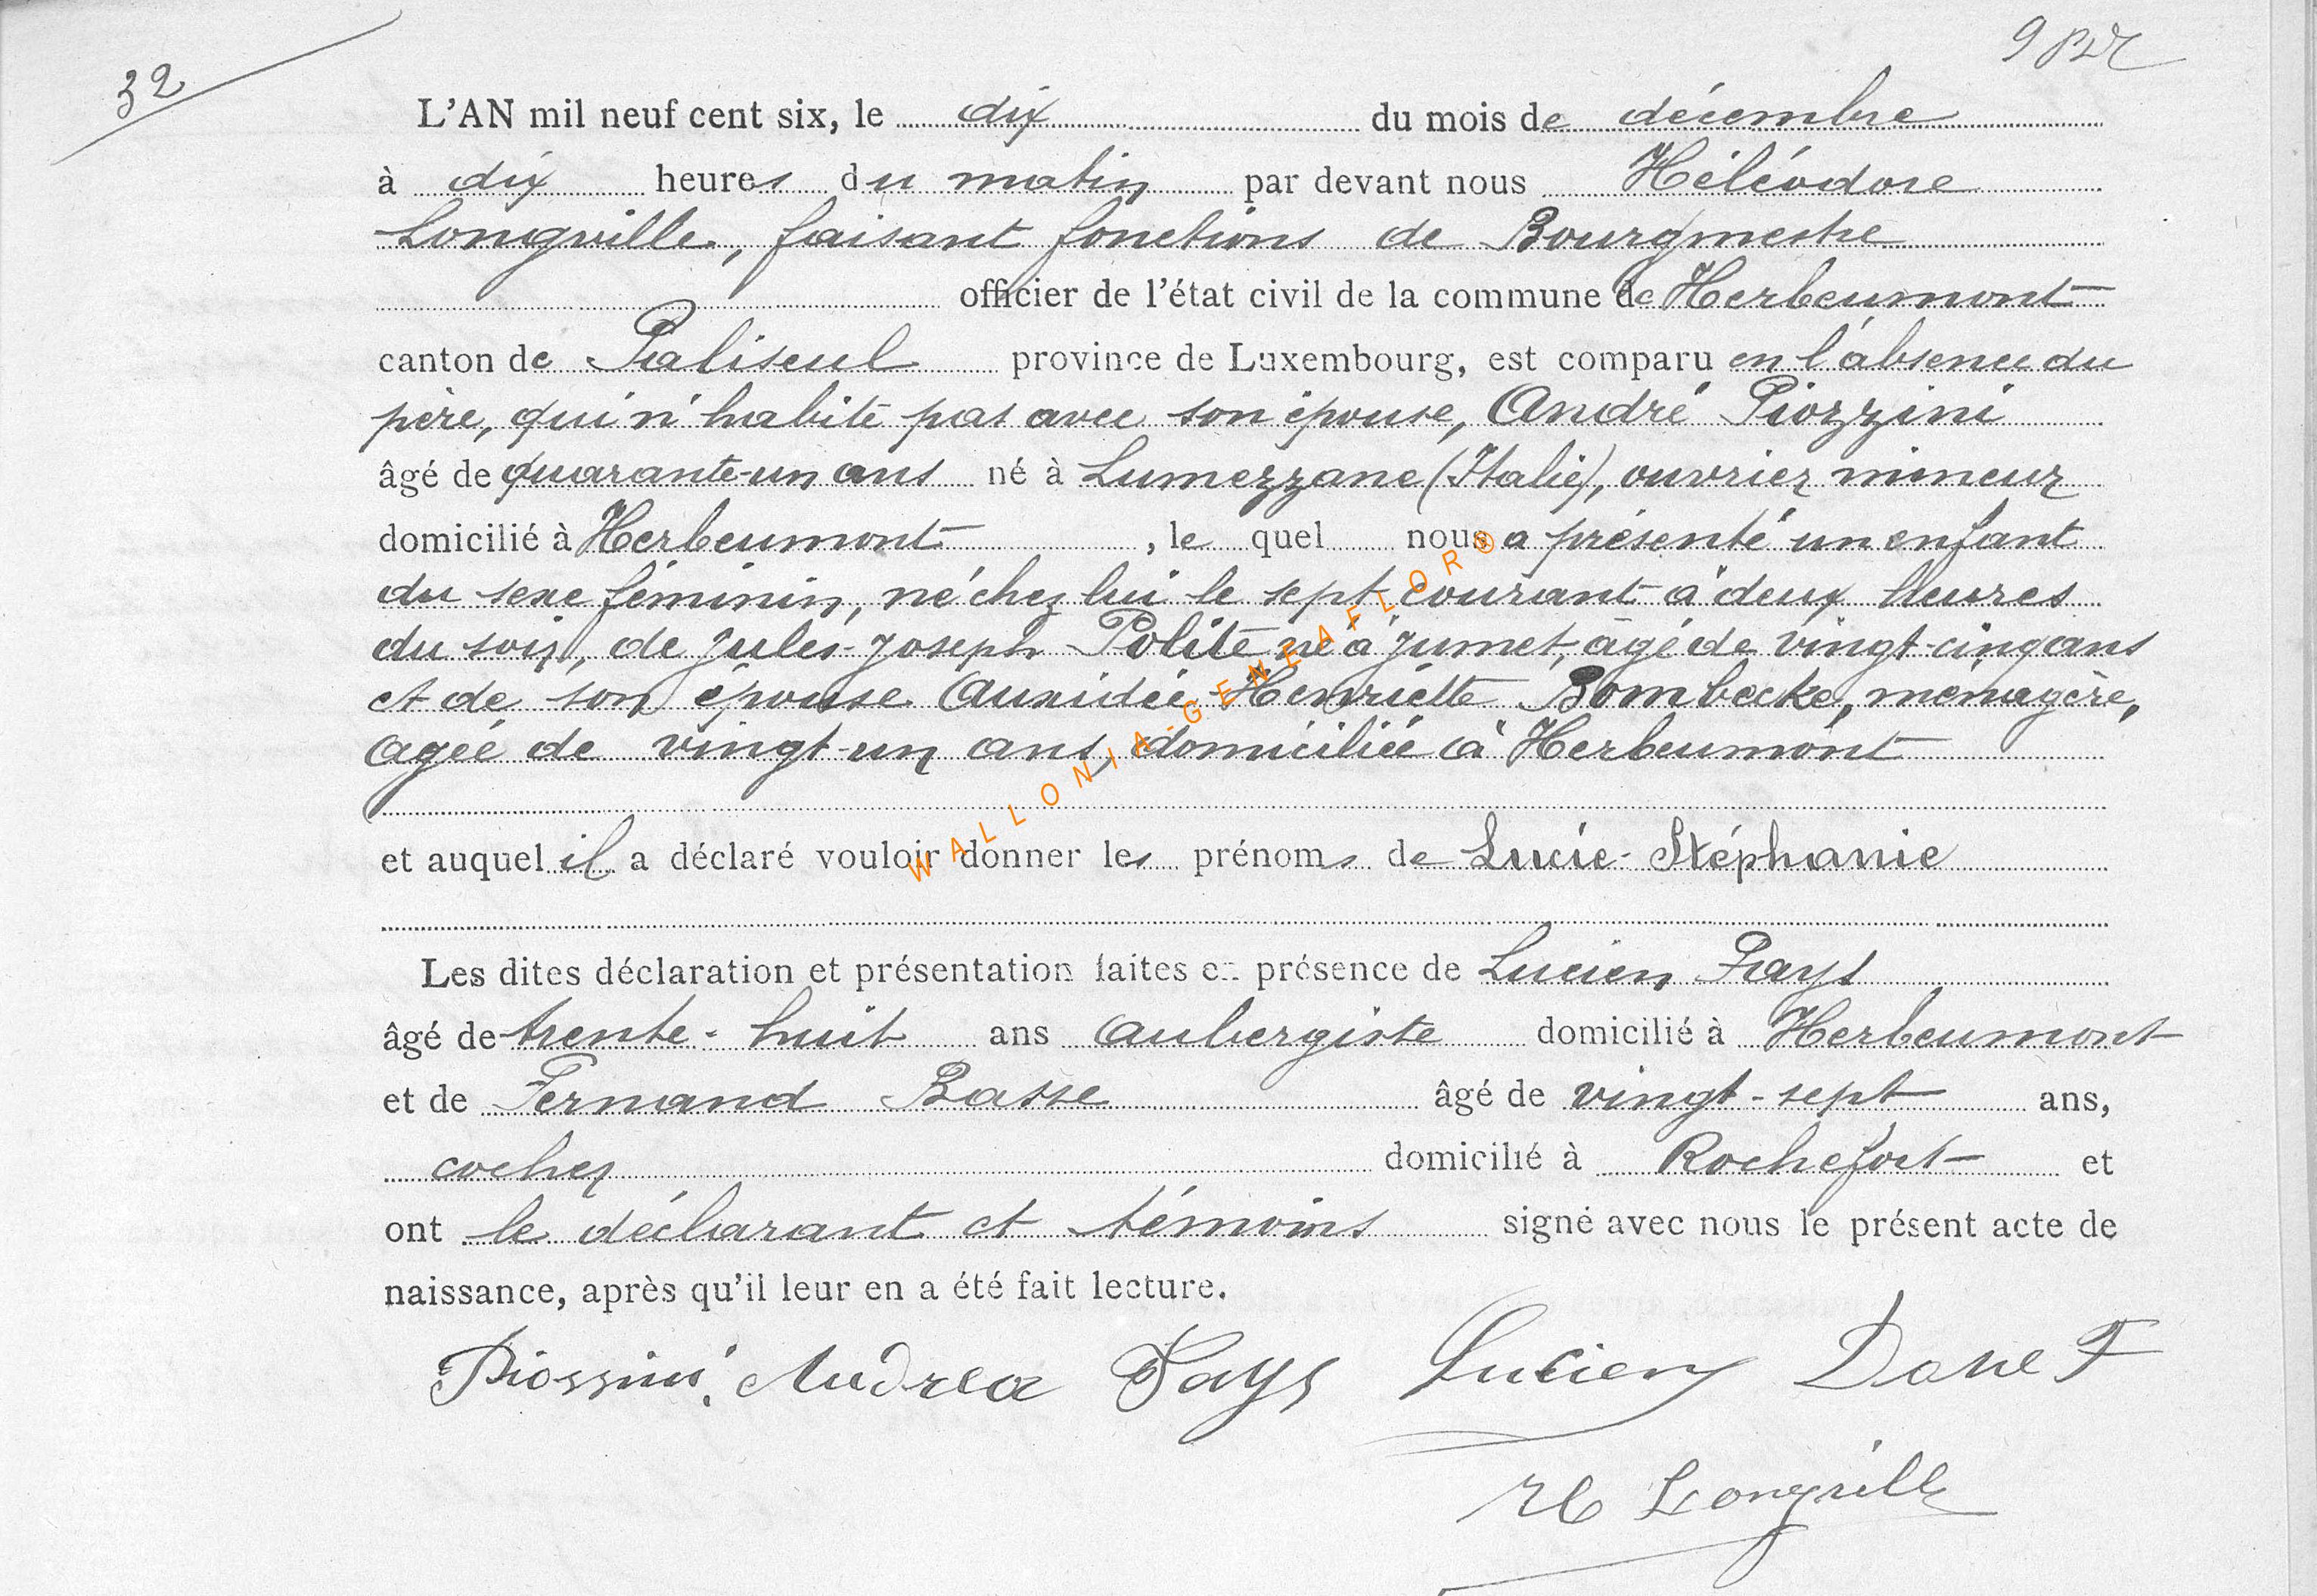 32
L'AN mil neuf cent six, le dix du mois de décembre
à dix heures du matin par devant nous Héléodore
Longville, faisant fonctions de Bourgmestre
officier de l'état civil de la commune de Herbeumont
canton de Paliseul province de Luxembourg, est comparu en l'absence du
père, qui n'habite pas avec son épouse, André Piozzini
âgé de quarante-un ans né à Lumezzane (Italie), ouvrier mineur
domicilié à Herbeumont, le quel nous a présenté un enfant
du sexe féminin, né chez lui le sept courant à deux heures
du soir, de Jules-Joseph Polite né à Jumet, âgé de vingt-cinq ans
et de son épouse Henriette Bombecke, ménagère,
agée de vingt-un ans, domiciliée à Herbeumont
et auquel il a déclaré vouloir donner les prénoms de Lucie-Stéphanie
Les dites déclaration et présentation faites en présence de Lucien Fays
âgé de trente-huit ans aubergiste domicilié à Herbeumont
et de Fernand Basse âgé de vingt-sept ans,
cocher domicilié à Rochefort et
ont le déclarant et témoins signé avec nous le présent acte de
naissance, après qu'il leur en a été fait lecture.
Piossini Andrea Fays Lucien F
H Longville
WALLONIA-GENEAFLOR®